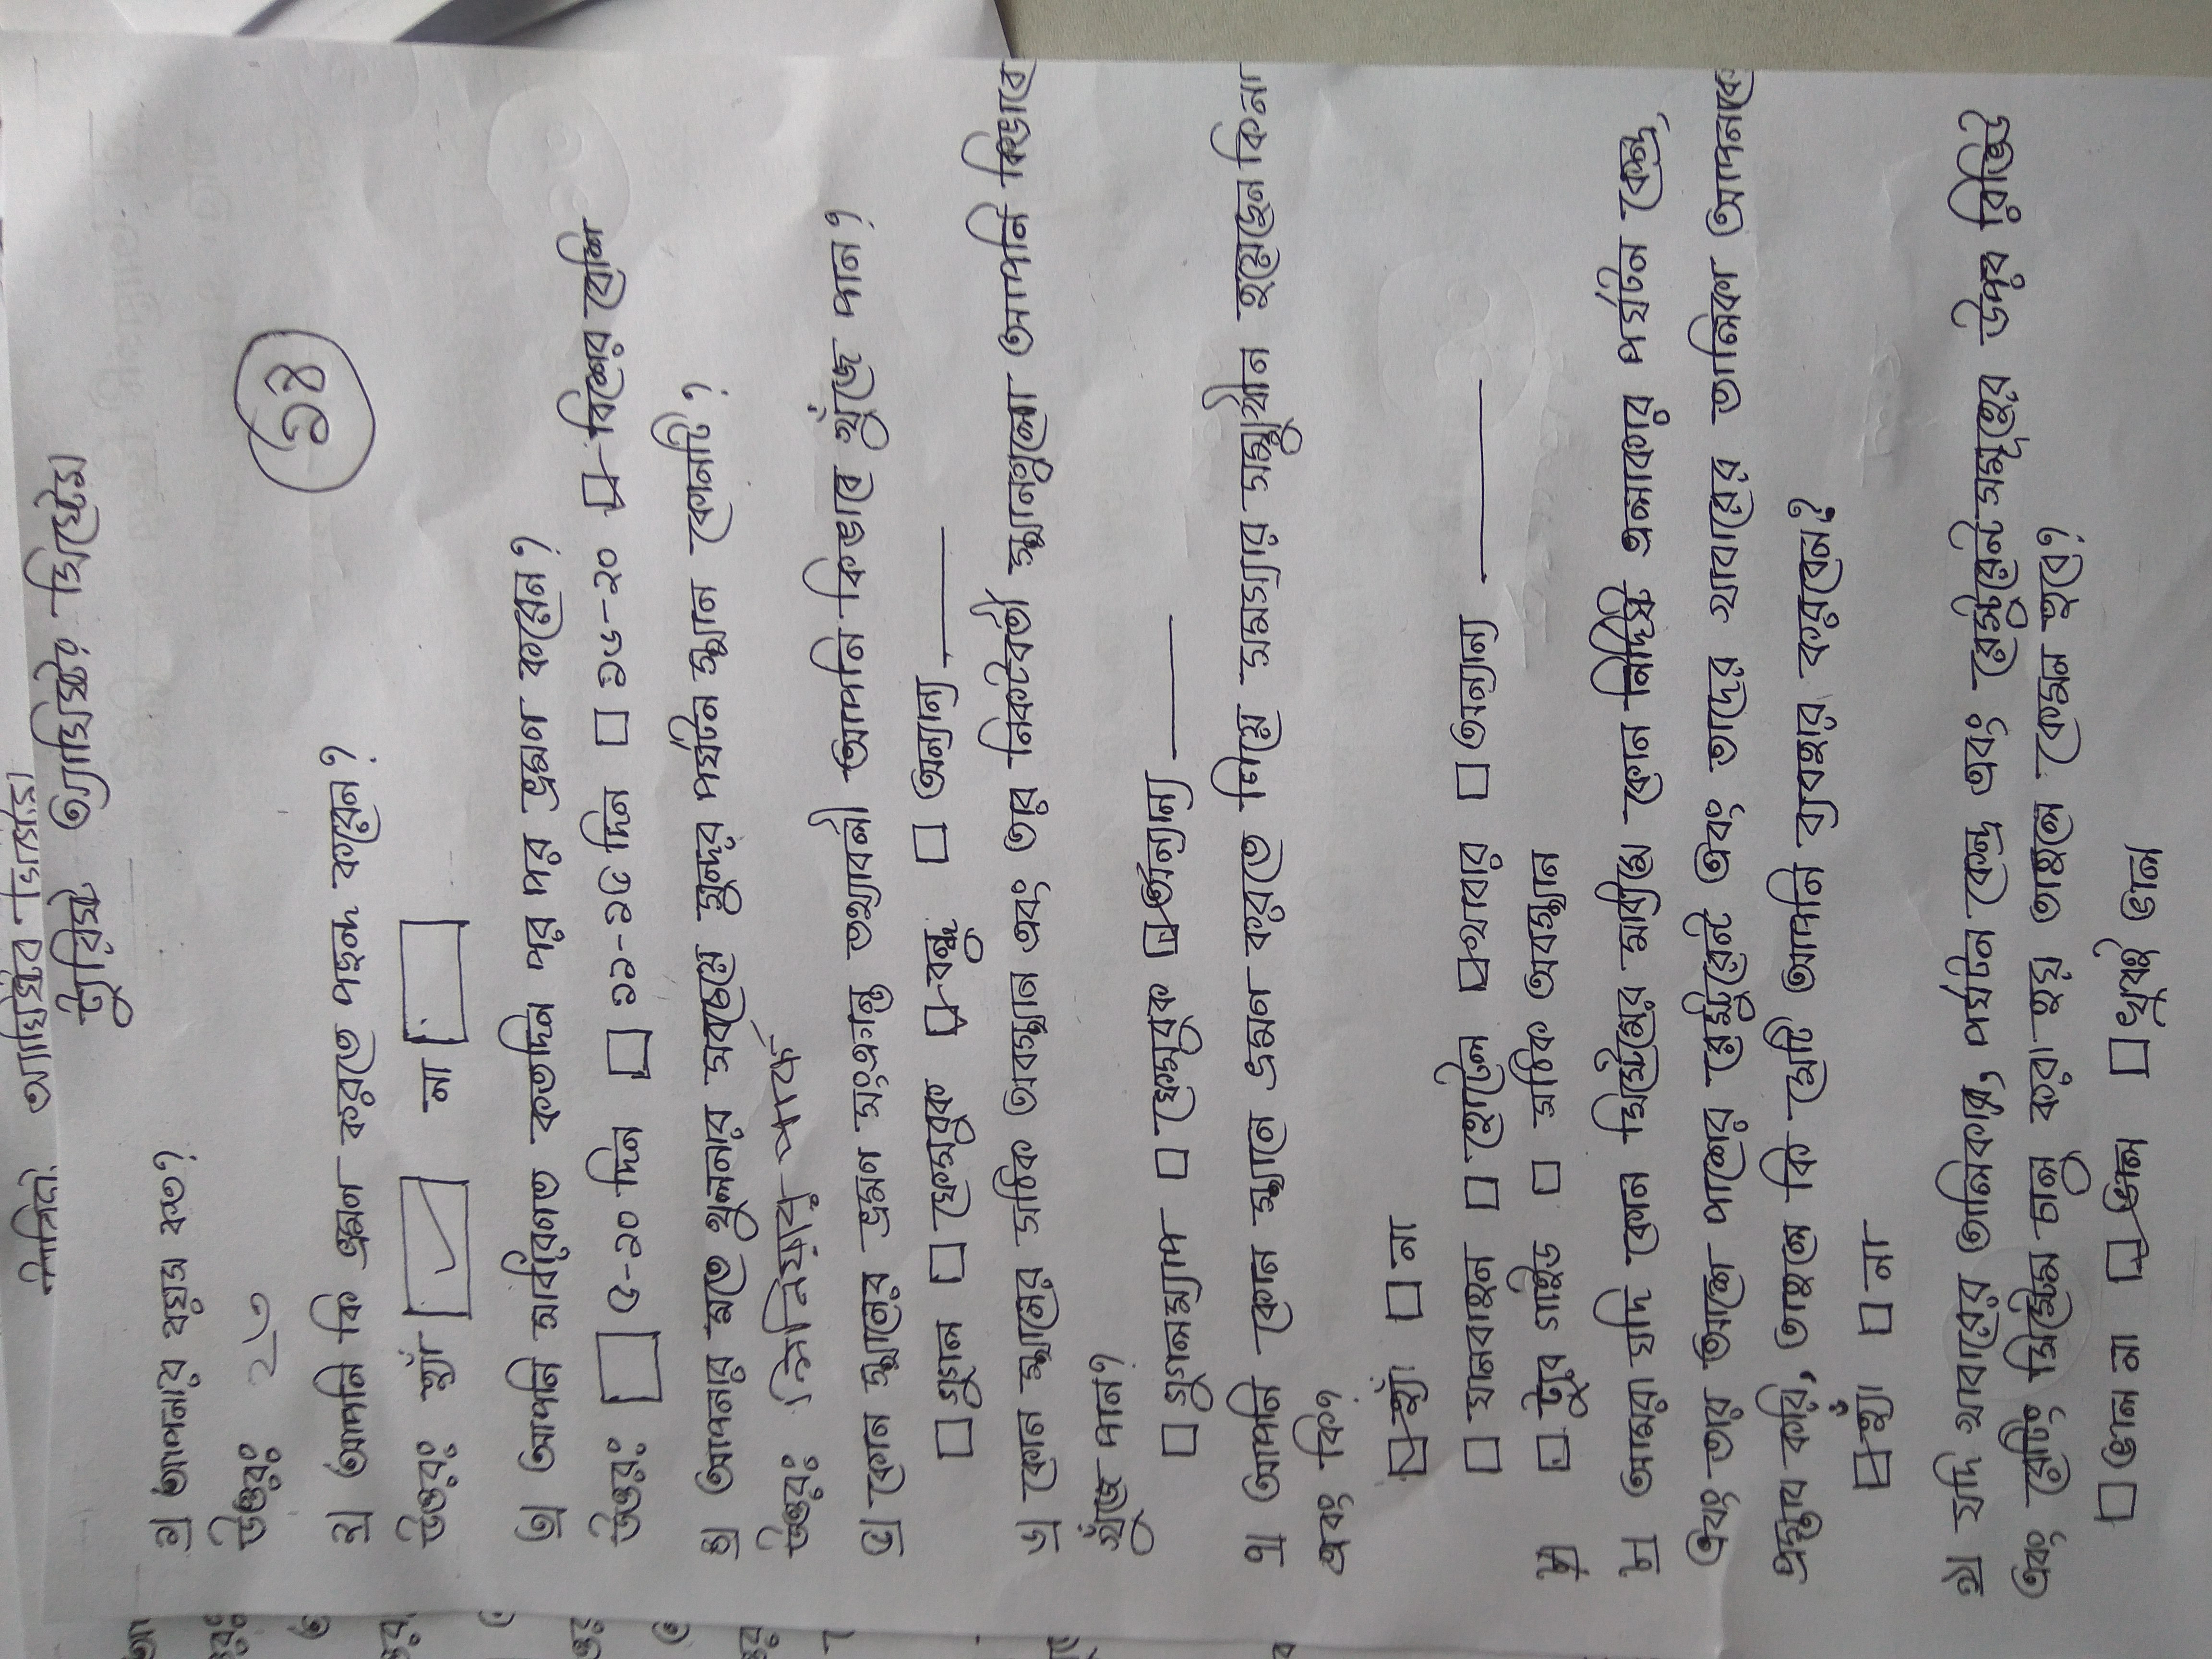 ট্যুরিস্ট অ্যাসিস্টিং সিস্টেম
১৪
১) আপনার বয়স কত?
উত্তরঃ ২৩
২) আপনি কি ভ্রমন করতে পছন্দ করেন?
উত্তরঃ হ্যাঁ না
৩) আপনি সাধারণত কতদিন পর পর ভ্রমণ করেন?
উত্তরঃ ৫-১০ দিন ১১-১৫ দিন ১৬-২০ বিশের বেশি
৪) আপনার মতে খুলনার সবচেয়ে সুন্দর পর্যটন স্থান কোনটি?
উত্তরঃ লিনিয়ার পার্ক
৫) কোন স্থানের ভ্রমন সংক্রান্ত তথ্যাবলী আপনি কিভাবে খুঁজে পান?
গুগল ফেসবুক বন্ধু অন্যান্য
৬) কোন স্থানের সঠিক অবস্থান এবং তার নিকটবর্তী স্থানগুলো আপনি কিভাবে
খুঁজে পান?
গুগলম্যাপ ফেসবুক অন্যান্য
৭) আপনি কোন স্থানে ভ্রমন করতে গিয়ে সমস্যার সম্মুখীন হয়েছেন কিনা
এবং কি?
হ্যাঁ না
যানবাহন হোটেল খাবার অন্যান্য
ট্যুর গাইড সঠিক অবস্থান
৮) আমরা যদি কোন সিস্টেমের মাধ্যমে কোন নির্দিষ্ট এলাকার পর্যটন কেন্দ্র,
এবং তার আশে পাশের রেস্টুরেন্ট এবং তাদের খাবারের তালিকা আপনাকে
প্রস্তাব করি, তাহলে কি সেটি আপনি ব্যবহার করবেন?
হ্যাঁ না
৯) যদি খাবারের তালিকার, পর্যটন কেন্দ্র এবং রেস্টুরেন্ট সমূহের উপর রিভিউ
এবং রেটিং সিস্টেম চালু করা হয় তাহলে কেমন হবে?
ভাল না ভাল খুবই ভাল